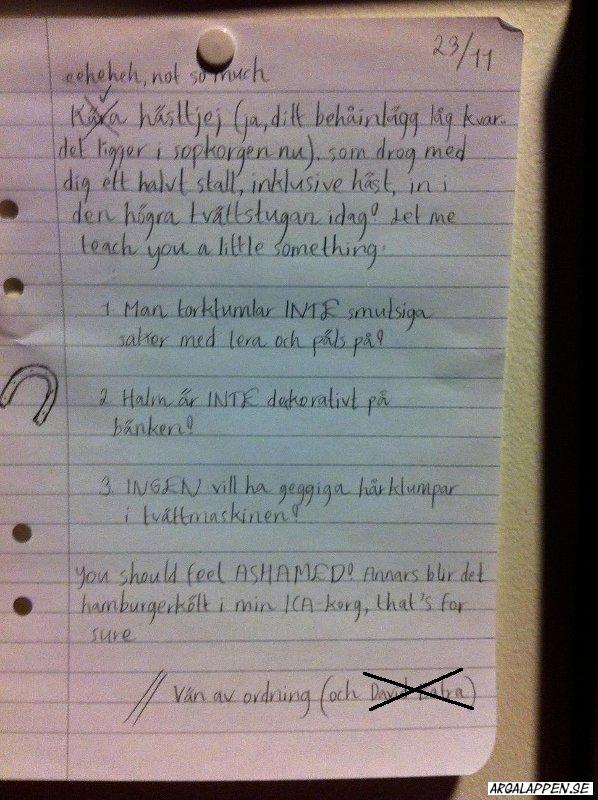 23/11
eeheheh, not so much
Kära hästtjej (ja, ditt behåinlägg låg kvar.
det ligger i sopkorgen nu). som drog med
dig ett halvt stall, inklusive häst, in i
den högra tvättstugan idag! Let me
teach you a little something.
1. Man torktumlar INTE smutsiga
saker med lera och päls på!
2. Halm är INTE dekorativt på
bänken!
3. INGEN vill ha geggiga hårklumpar
i tvättmaskinen!
You should feel ASHAMED! Annars blir det
hamburgerkött i min ICA-korg, that's for
sure
// Vän av ordning (och David
ARGALAPPEN.SE